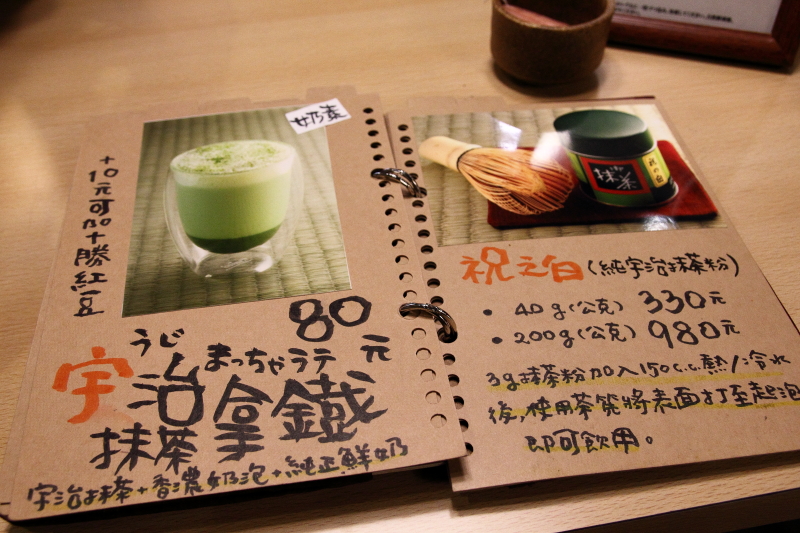 奶素
+10元可加十勝紅豆
80元
うじ まっちゃラテ
宇治
抹茶拿鐵
宇治抹茶+香濃奶泡+純正鮮奶
抹茶
祝之白(純宇治抹茶粉)
• 40g(公克) 330元
• 200g(公克) 980元
3g抹茶粉加入150c.c.熱/冷水
後,使用茶筅將表面打至起泡
即可飲用。